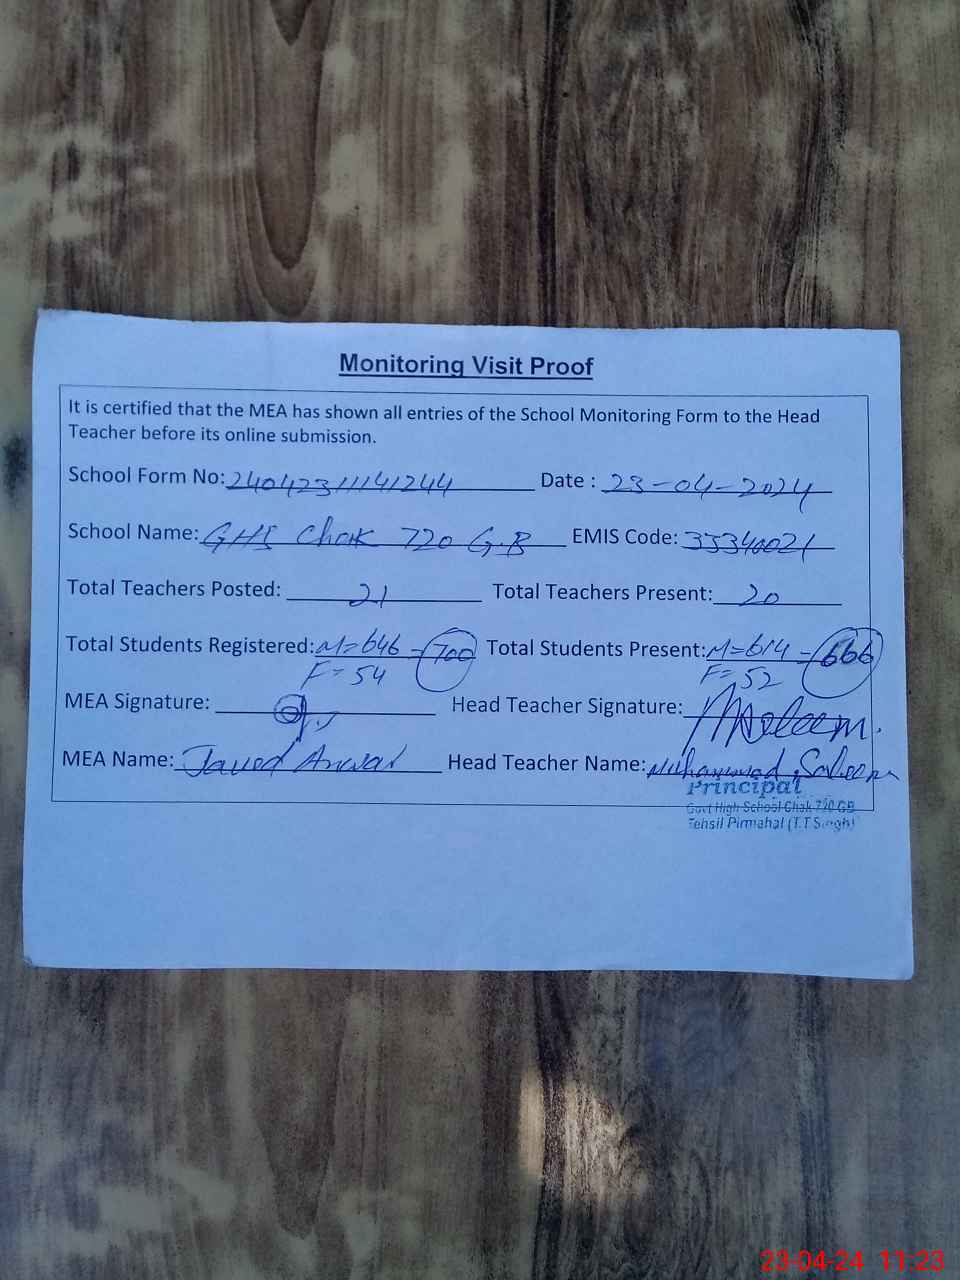 Monitoring Visit Proof
It is certified that the MEA has shown all entries of the School Monitoring Form to the Head
Teacher before its online submission.
School Form No: 24042311141244 Date : 23-04-2024
School Name: GHS Chak 720 G.B EMIS Code: 33340021
Total Teachers Posted: 21 Total Teachers Present: 20
Total Students Registered: M=646 - 700 Total Students Present: M=614 - 666
F=54 F=52
MEA Signature: Head Teacher Signature: MSaleem.
MEA Name: Javed Anwar Head Teacher Name: Muhammad Saleem
Principal
Govt High School Chak 720 GB
Tehsil Pirmahal (T.T Singh)
23-04-24 11:23